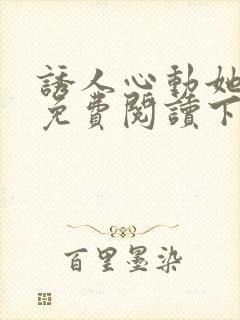 誘人心動她
免費閱讀下
百里墨染